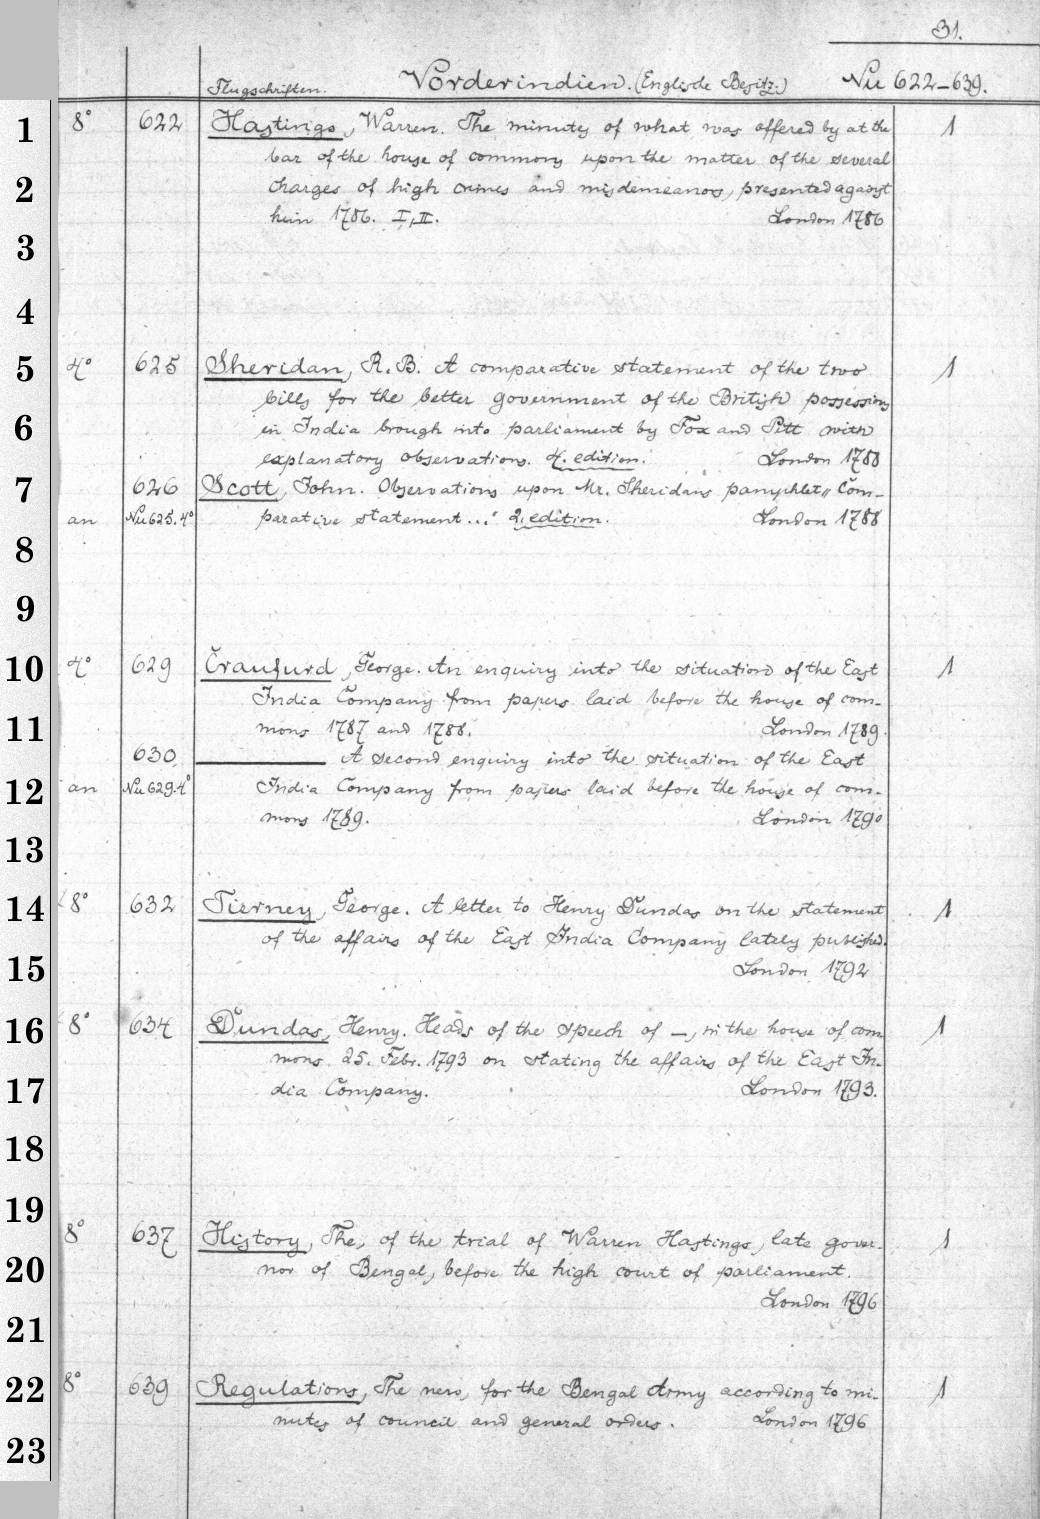 31.
Flugschriften. Vorderindien. (Englische Besitz.) Nu 622-639.
1 8° 622 Hastings, Warren. The minutes of what was offered by at the 1
bar of the house of commons upon the matter of the several
2 charges of high crimes and misdemeanors, presented against
him 1786. I, II. London 1786
3
4
5 4° 625 Sheridan, R. B. A comparative statement of the two 1
bills for the better government of the British possessions
6 in India brough into parliament by Fox and Pitt with
explanatory observations. 4. edition. London 1788
7 626 Scott, John. Observations upon Mr. Sheridans pamphlet „Com-
an Nu 625.4° parative statement...“ 2. edition. London 1788
8
9
10 4° 629 Craufurd, George. An enquiry into the situation of the East 1
India Company from papers laid before the house of com-
11 mons 1787 and 1788. London 1789.
630 ——— A second enquiry into the situation of the East
12 an Nu 629.4° India Company from papers laid before the house of com-
mons 1789. London 1790
13
14 8° 632 Tierney, George. A letter to Henry Dundas on the statement 1
of the affairs of the East India Company lately published.
15 London 1792
16 8° 634 Dundas, Henry. Heads of the speech of —, in the house of com
mons 25. Febr. 1793 on stating the affairs of the East In- 1
17 dia Company. London 1793.
18
19
8° 637 History, The, of the trial of Warren Hastings, late gover- 1
20 nor of Bengal, before the high court of parliament.
London 1796
21
22 8° 639 Regulations, The new, for the Bengal Army according to mi- 1
nutes of council and general orders. London 1796
23